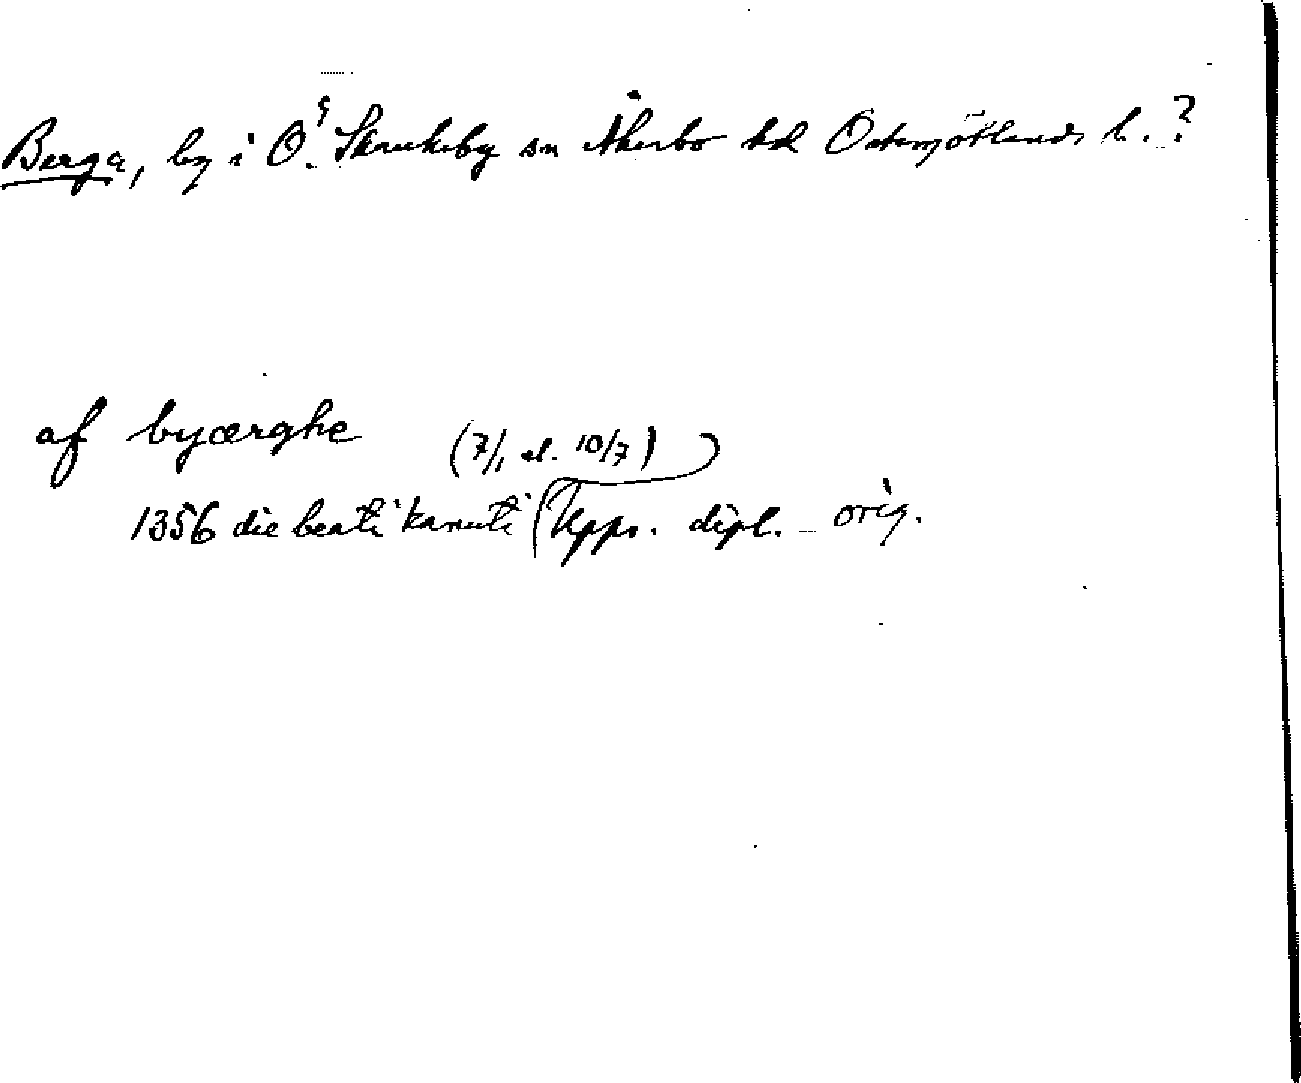 Berga, by i Ö. Skrukeby sn Åkerbo hd Östergötlands l. ?
af byærghe (7/1 el. 10/7)
1356 die beati kanuti Upps. dipl. orig.